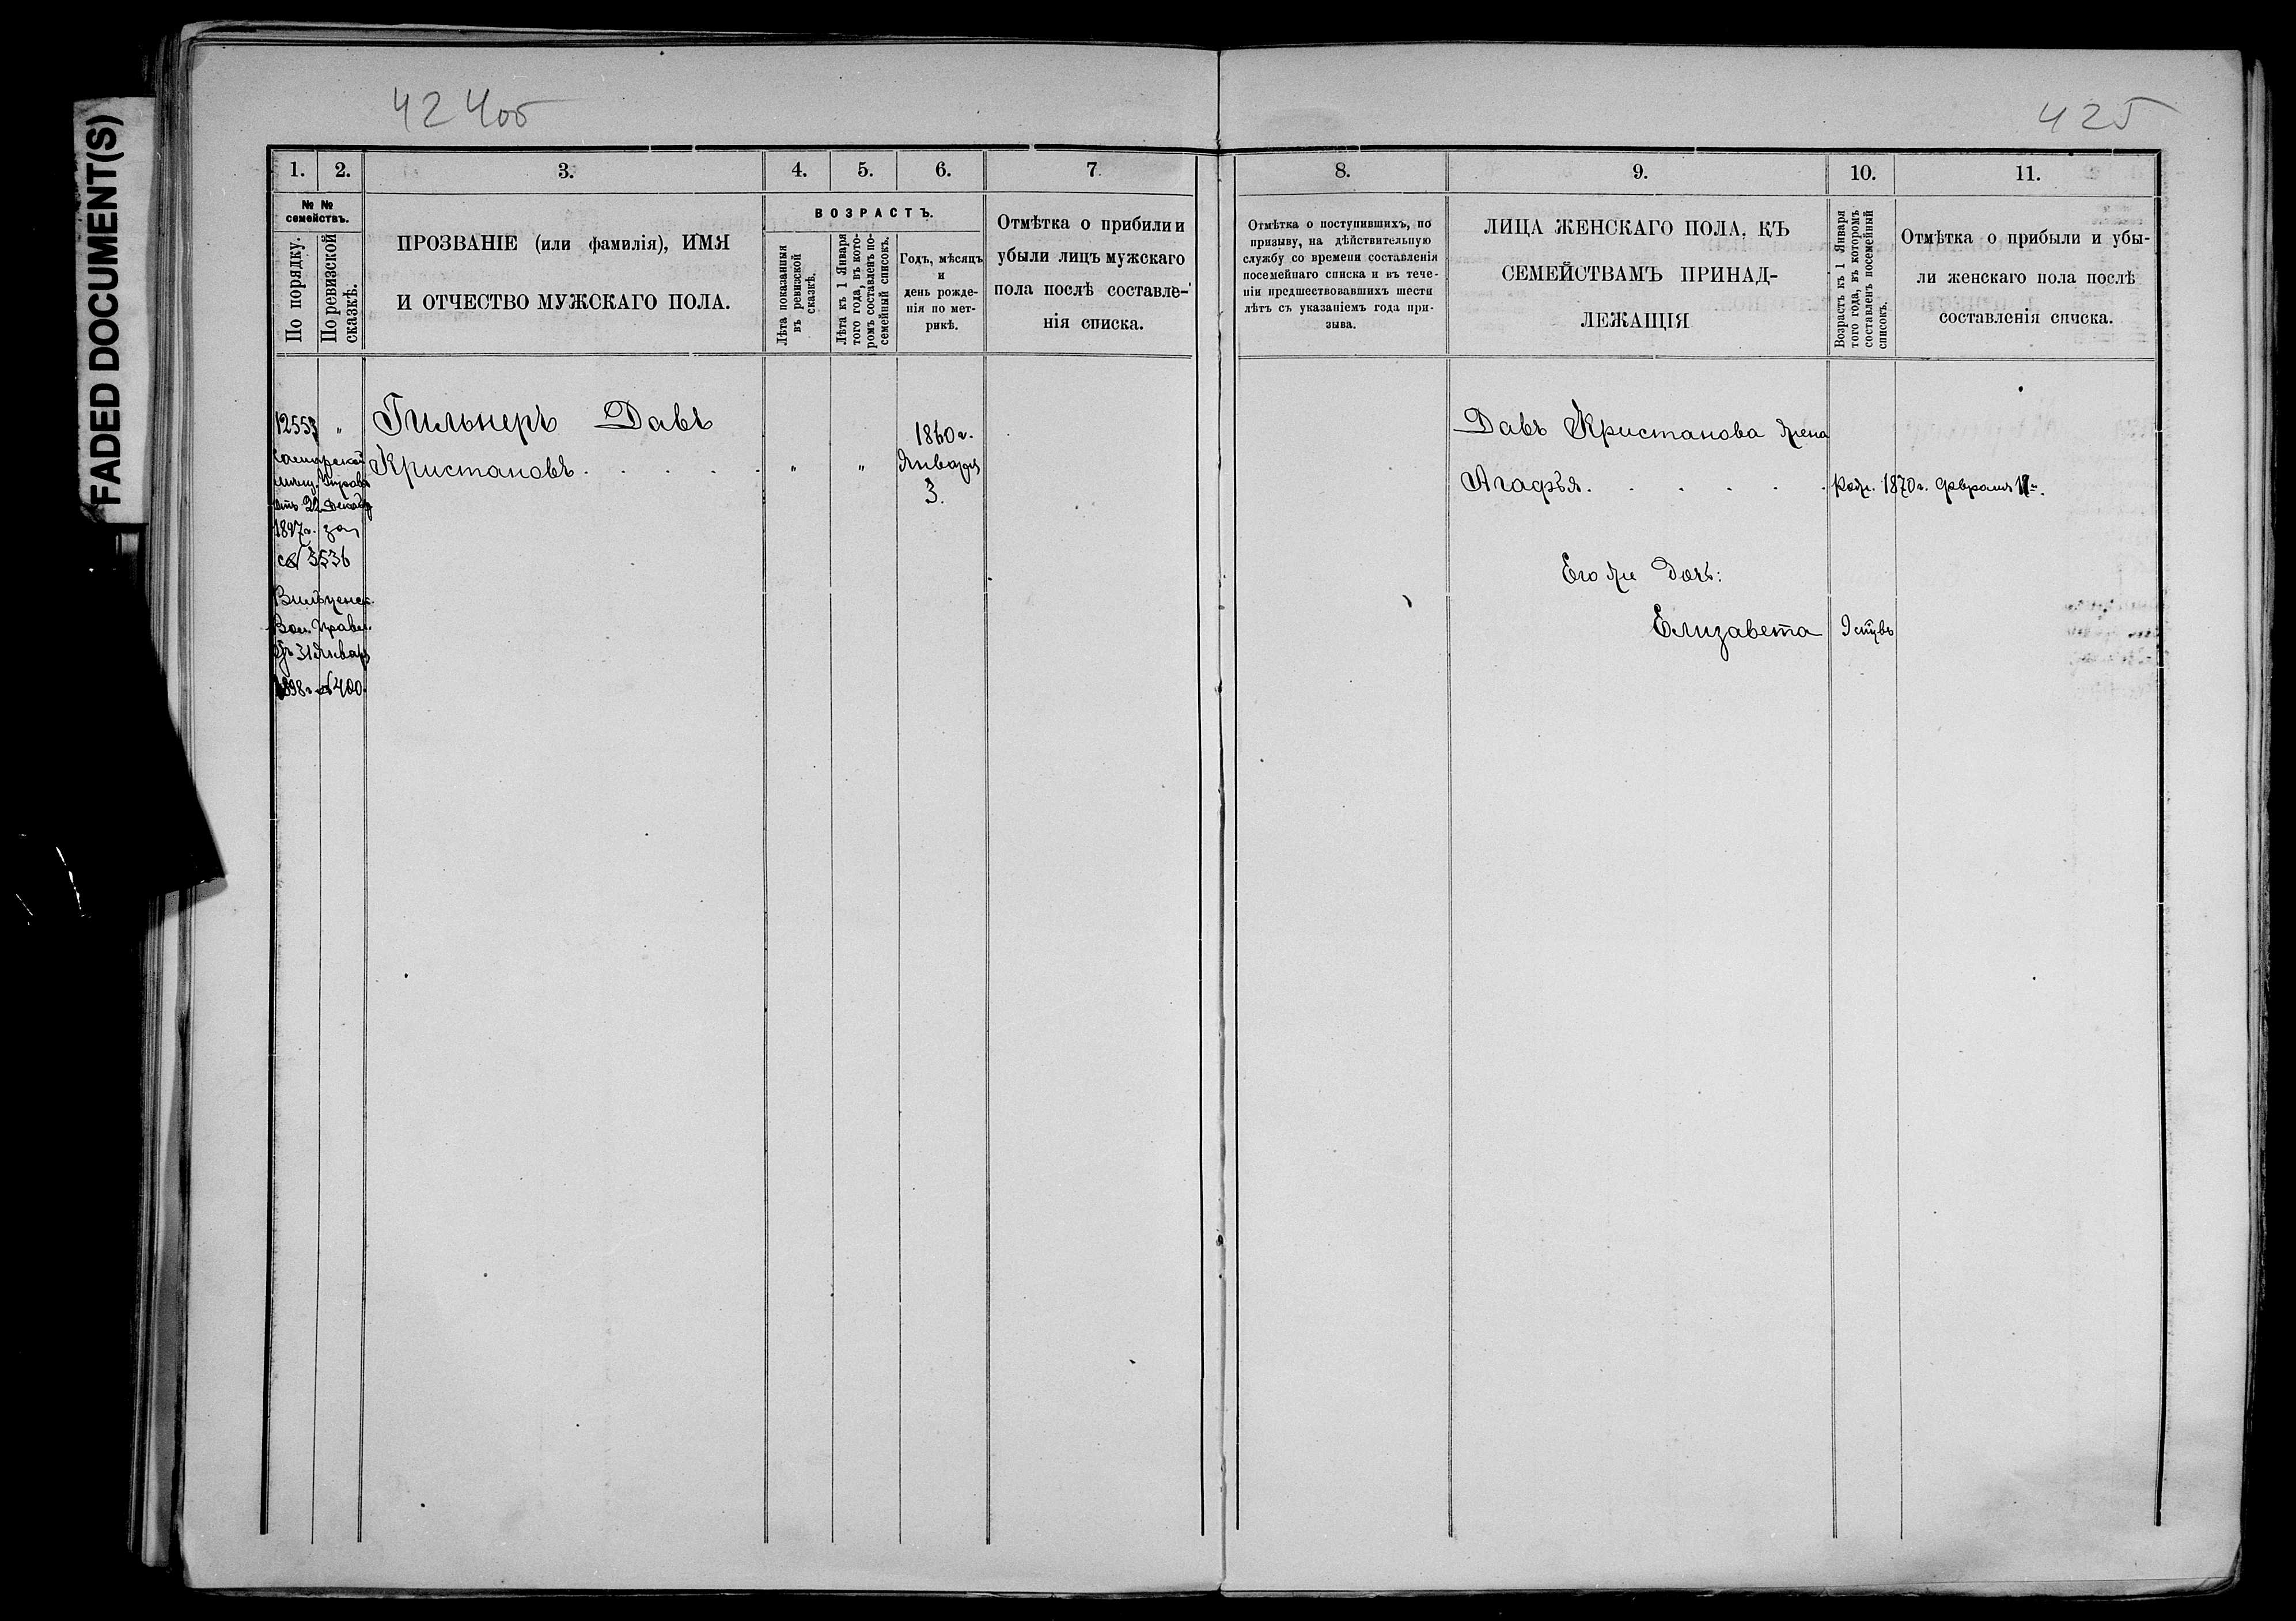 FADED DOCUMENT(S)
424об
1. 2. 3. 4. 5. 6. 7
№ №
семействъ.
По порядку.
По ревизской
сказкѣ.
ПРОЗВАНІЕ (или фамилія), ИМЯ
И ОТЧЕСТВО МУЖСКАГО ПОЛА.
ВОЗРАСТЪ.
Лѣта показанныя
въ ревизской
сказкѣ.
Лѣта къ 1 Января
того года, въ кото-
ромъ составленъ по-
семейный списокъ.
Годъ, мѣсяцъ
и
день рожде-
нія по мет-
рикѣ.
Отмѣтка о прибили и
убыли лицъ мужскаго
пола послѣ составле-
нія списка.
12553 „ Гильнеръ Давъ
Кристановъ. . . . . . „ „
1860 г.
Января
3.
Самарской
мѣщ. Управ
отъ 22 Декаб
1897 г. за
№ 3536
Вол. Правл.
31 Январ
1898 г. № 400.
425
8. 9. 10. 11.
Отмѣтка о поступившихъ, по
призыву, на дѣйствительную
службу со времени составленія
посемейнаго списка и въ тече-
ніи предшествовавшихъ шести
лѣтъ съ указаніемъ года при-
зыва.
ЛИЦА ЖЕНСКАГО ПОЛА, КЪ
СЕМЕЙСТВАМЪ ПРИНАД-
ЛЕЖАЩІЯ
Возрастъ къ 1 Января
того года, въ которомъ
составленъ посемейный
списокъ.
Отмѣтка о прибыли и убы-
ли женскаго пола послѣ
составленія списка.
Давъ Кристанова жена
Агафья. . . . . . род. 1870 г. Февраля
Его же дочь:
Елизавета